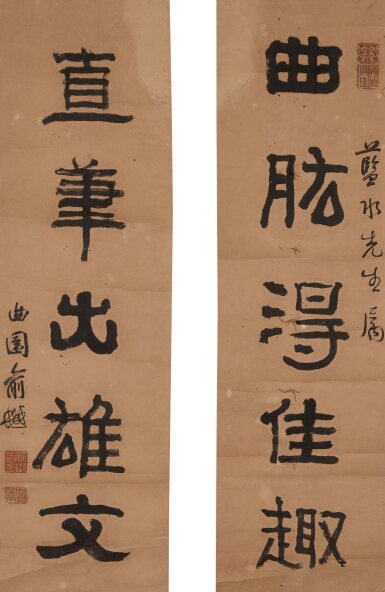 藍水先生屬
曲肱得佳趣
直筆出雄文
曲園俞樾